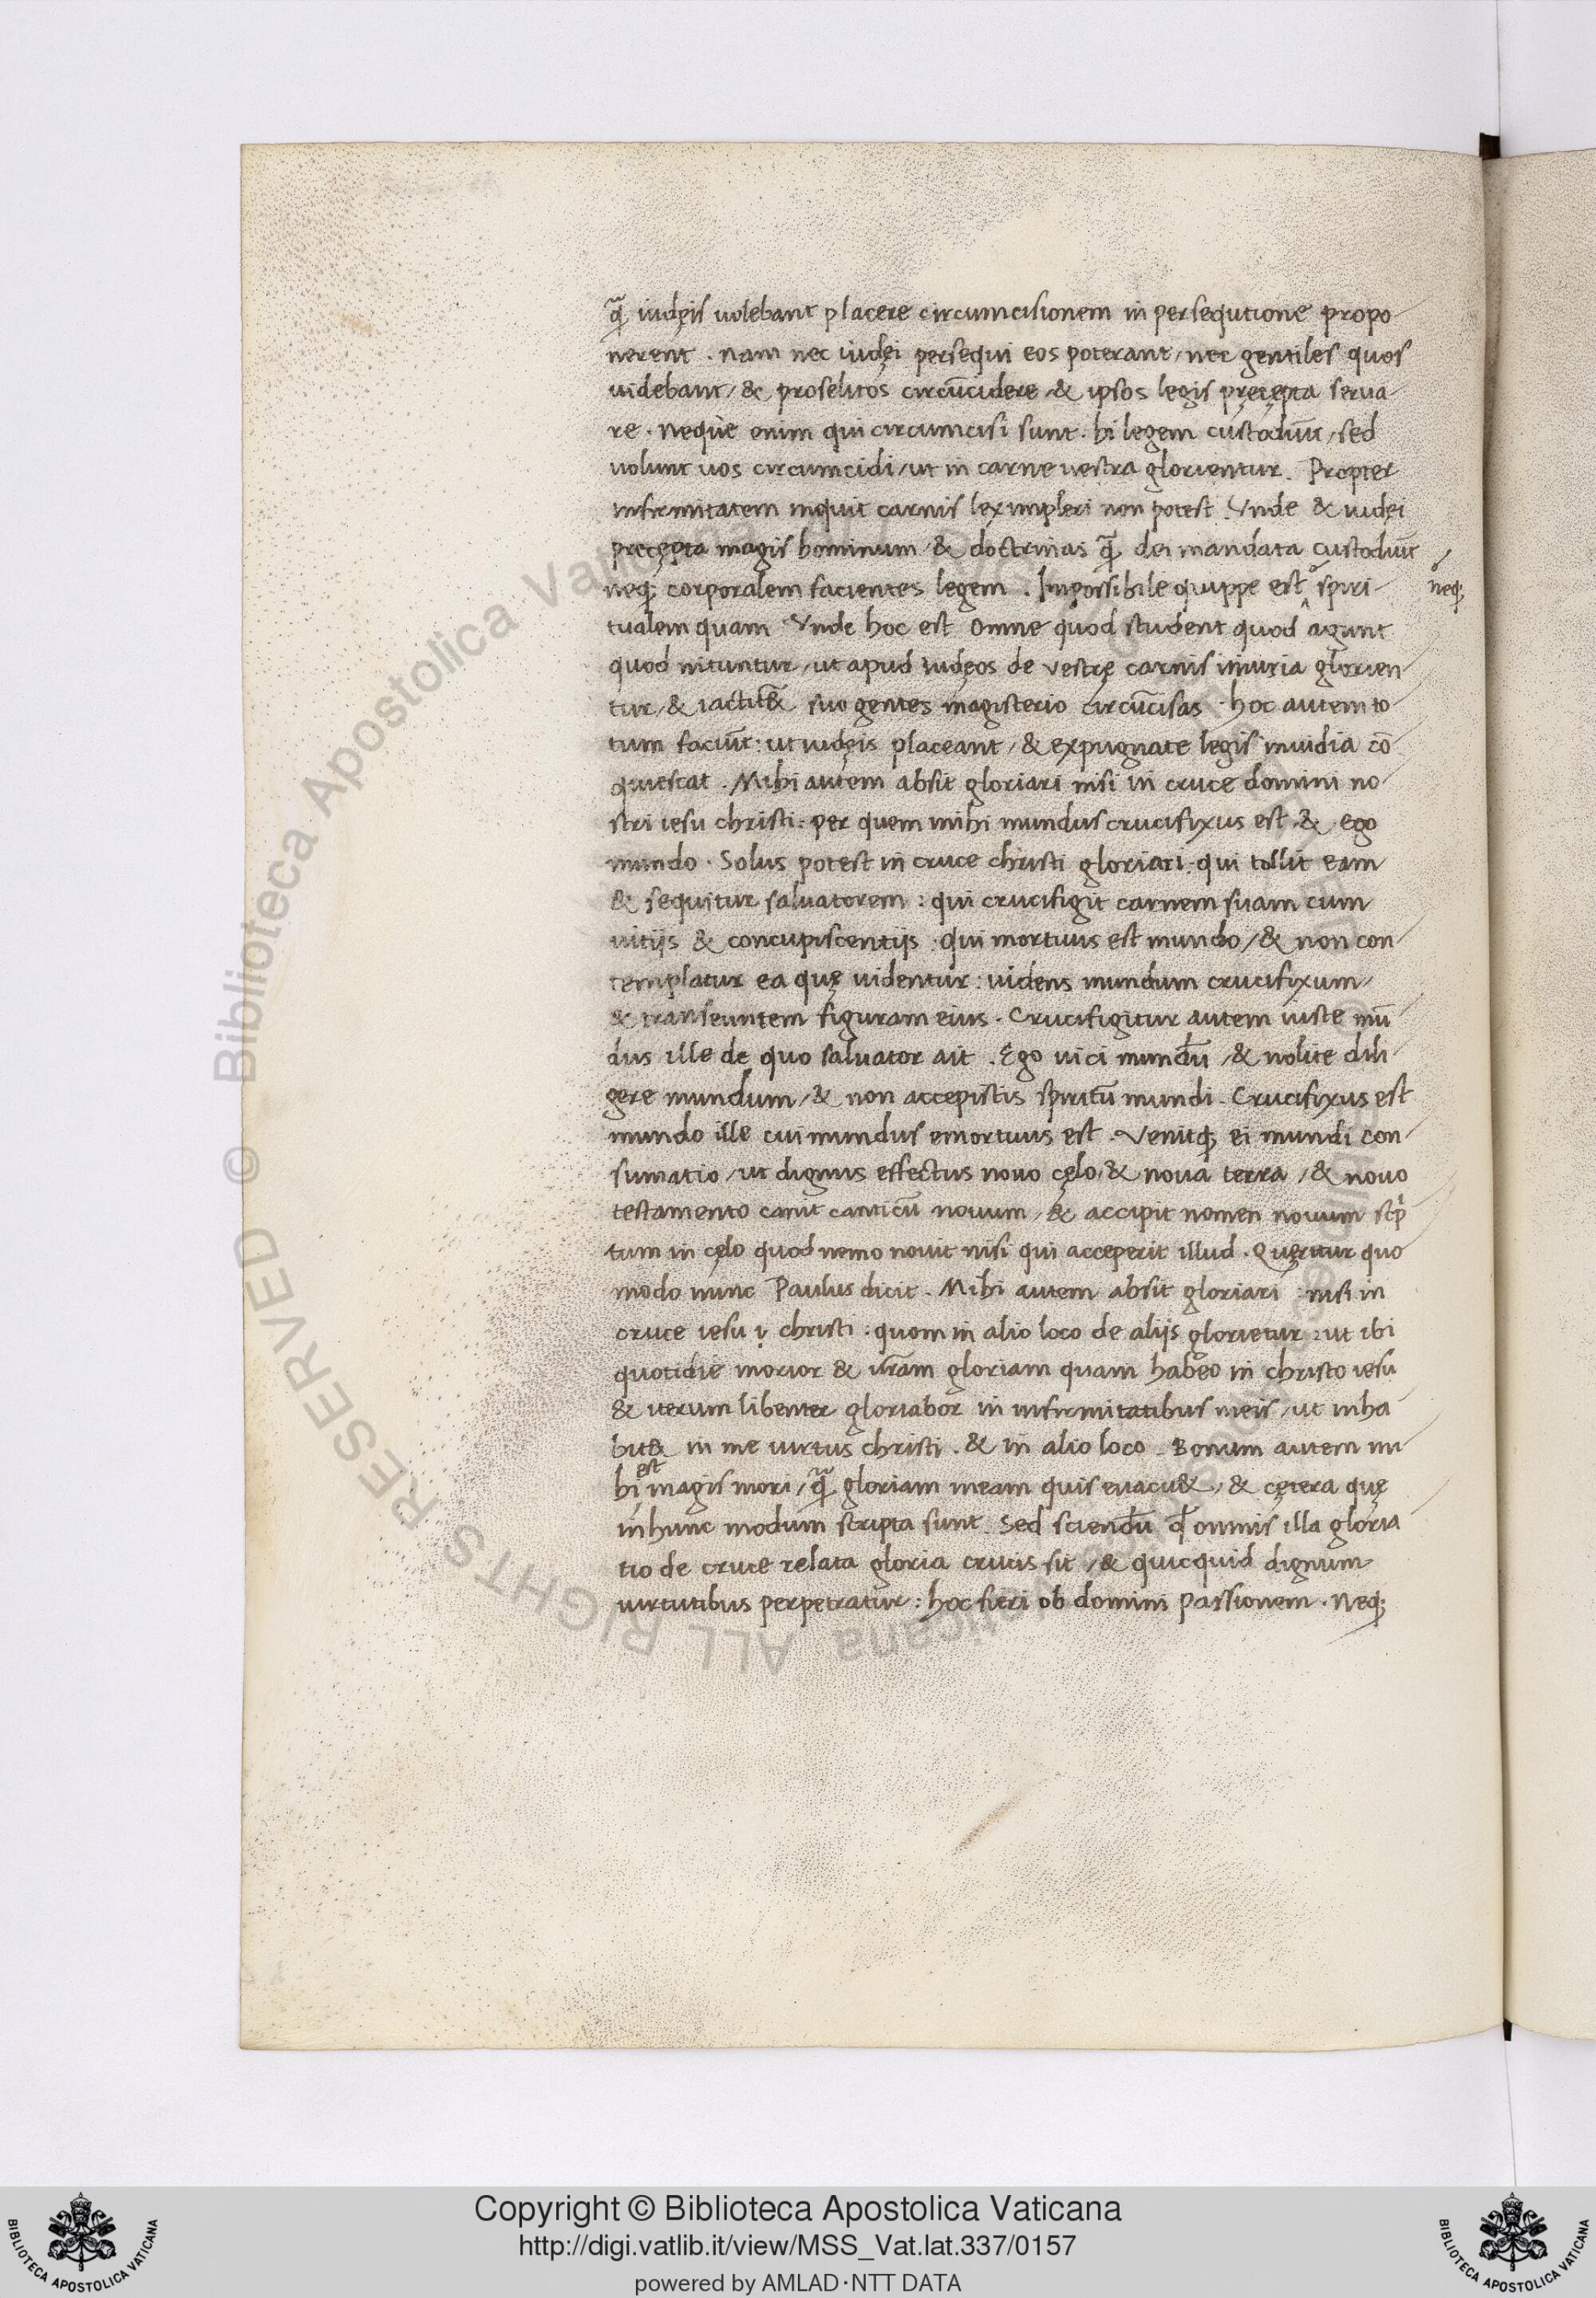 qᷓ iudęis uolebant placere circumcisionem in persequtione propo
nerent . nam nec iudęi persequi eos poterant / nec gentiles quos
uidebant / & proselitos circūcidere / & ipsos legis pręcępta serua-
re . neque enim qui circumcisi sunt . hi legem custodiūt / sed
uolunt uos circumcidi / ut in carne uestra glorientur . Propter
infirmitatem inquit carnis lex impleri non potest . Vnde & iudęi
precępta magis hominum & doctrinas qᷓ dei mandata custodiūt
neq; corporalem facientes legem . Impossibile quippe est spiri-
neq;
tualem quam Vnde hoc est Omne quod student quod agunt
quod nituntur / ut apud iudęos de vestrę carnis iniuria glorien
tur / & iactit& suo gentes magisterio circūcisas . hoc autem to
tum faciūt : ut iudęis placeant / & expugnate legis inuidia cō
quiescat . Mihi autem absit gloriari nisi in cruce domini no
stri iesu christi : per quem mihi mundus crucifixus est & ego
mundo . Solus potest in cruce christi gloriari : qui tollit eam
& sequitur saluatorem : qui crucifigit carnem suam cum
uitijs & concupiscentijs . qui mortuus est mundo / & non con
templatur ea quę uidentur : uidens mundum crucifixum
& transeuntem figuram eius . Crucifigitur autem iuste mū
dus ille de quo saluator ait . Ego uici mundū / & nolite dili
gere mundum / & non accepistis spiritū mundi . Crucifixus est
mundo ille cui mundus emortuus est . Venitq; ei mundi con
sumatio / ut dignus effectus nouo cęlo / & noua terra / & nouo
testamento canit canticū nouum / & accipit nomen nouum scp̄
tum in cęlo quod nemo nouit nisi qui acceperit illud . Quęritur quo
modo nunc Paulus dicit . Mihi autem absit gloriari : nisi in
cruce iesu christi : quom in alio loco de alijs glorietur : ut ibi
quotidie morior & ur̄am gloriam quam habeo in christo iesu
& iterum libenter gloriabor in infirmitatibus meis / ut inha
bit& in me uirtus christi . & in alio loco . Bonum autem mi
hi est magis mori / qᷓ gloriam meam quis euacu& / & cętera quę
in hunc modum scripta sunt . Sed sciendū qd̄ omnis illa gloria
tio de cruce relata gloria crucis sit / & quicquid dignum
uirtutibus perpetratur : hoc fieri ob domini passionem . Neq;
Copyright © Biblioteca Apostolica Vaticana
http://digi.vatlib.it/view/MSS_Vat.lat.337/0157
powered by AMLAD·NTT DATA